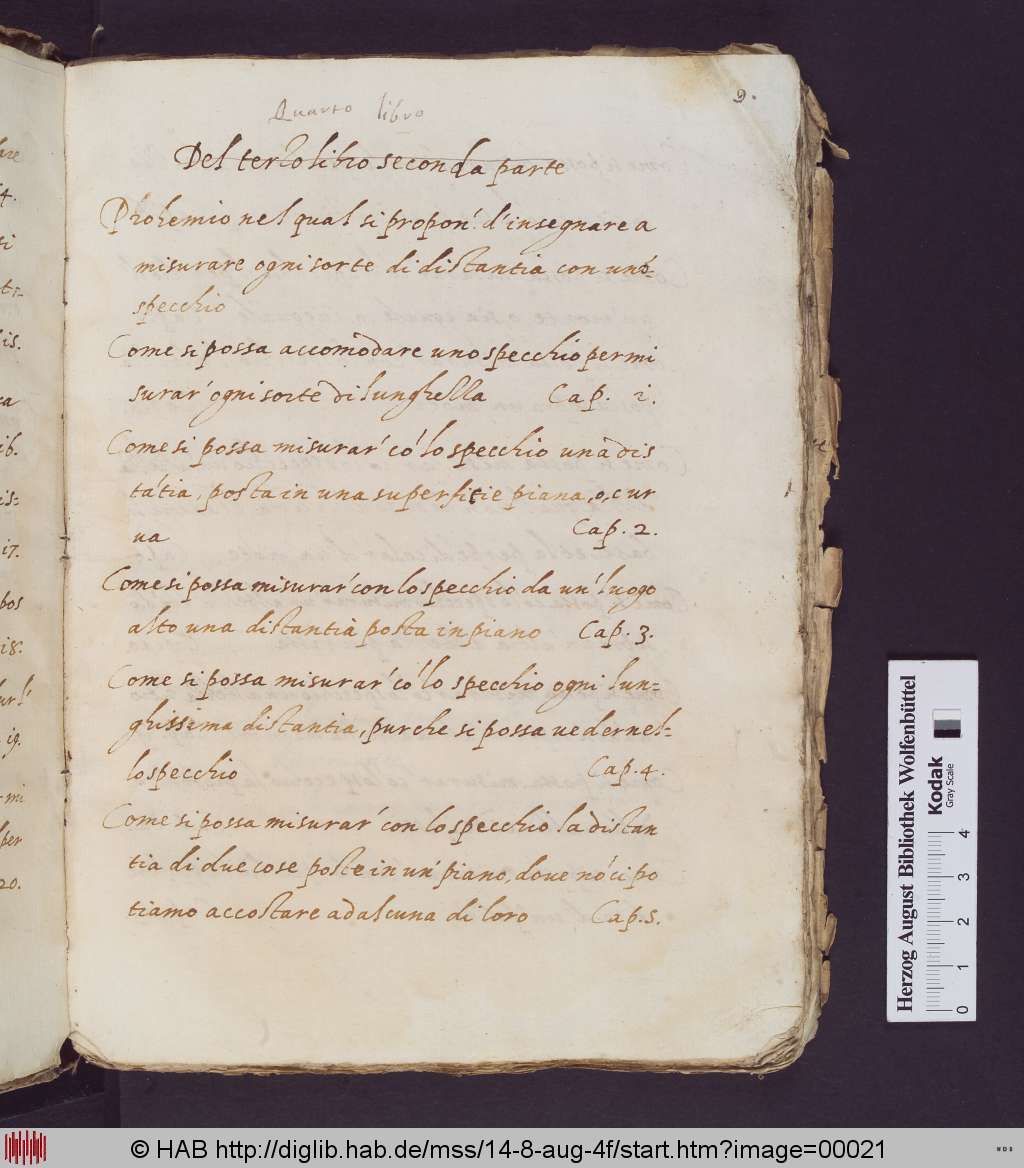 9.
Quarto libro
Del terzo libro seconda parte
Prohemio nel qual si propon' d'insegnare a
misurare ogni sorte di distantia con uno-
specchio
Come si possa accomodare uno specchio per mi
surar' ogni sorte di lunghezza Cap. 1.
Come si possa misurar' có lo specchio una dis
tátia, posta in una superfitie piana, o, cur
va Cap. 2.
Come si possa misurar' con lo specchio da un' luogo
alto una distantia posta in piano Cap. 3.
Come si possa misurar' có lo specchio ogni lun=
ghissima distantia, purche si possa veder nel=
lo specchio Cap. 4.
Come si possa misurar' con lo specchio la distan
tia di due cose poste in un' piano, dove nó ci po
tiamo accostare ad alcuna di loro Cap. 5.
4.
si
lis.
ib.
is-
17.
bos
18.
19.
mi
per
20.
Herzog August Bibliothek Wolfenbüttel
Kodak
Gray Scale
0 1 2 3 4
© HAB http://diglib.hab.de/mss/14-8-aug-4f/start.htm?image=00021